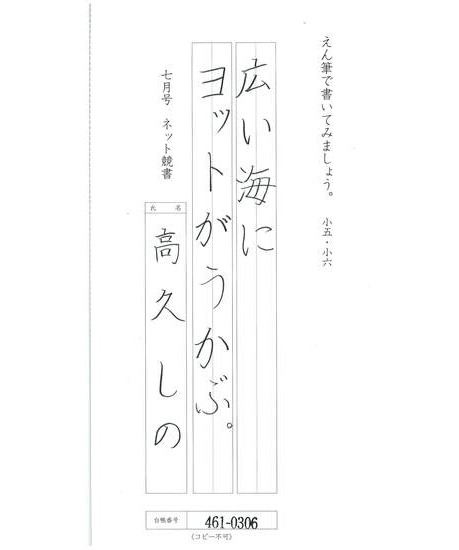 えん筆で書いてみましょう。 小五・小六
広い海に
ヨットがうかぶ。
七月号 ネット競書
氏名
高久しの
台帳番号 461-0306
(コピー不可)